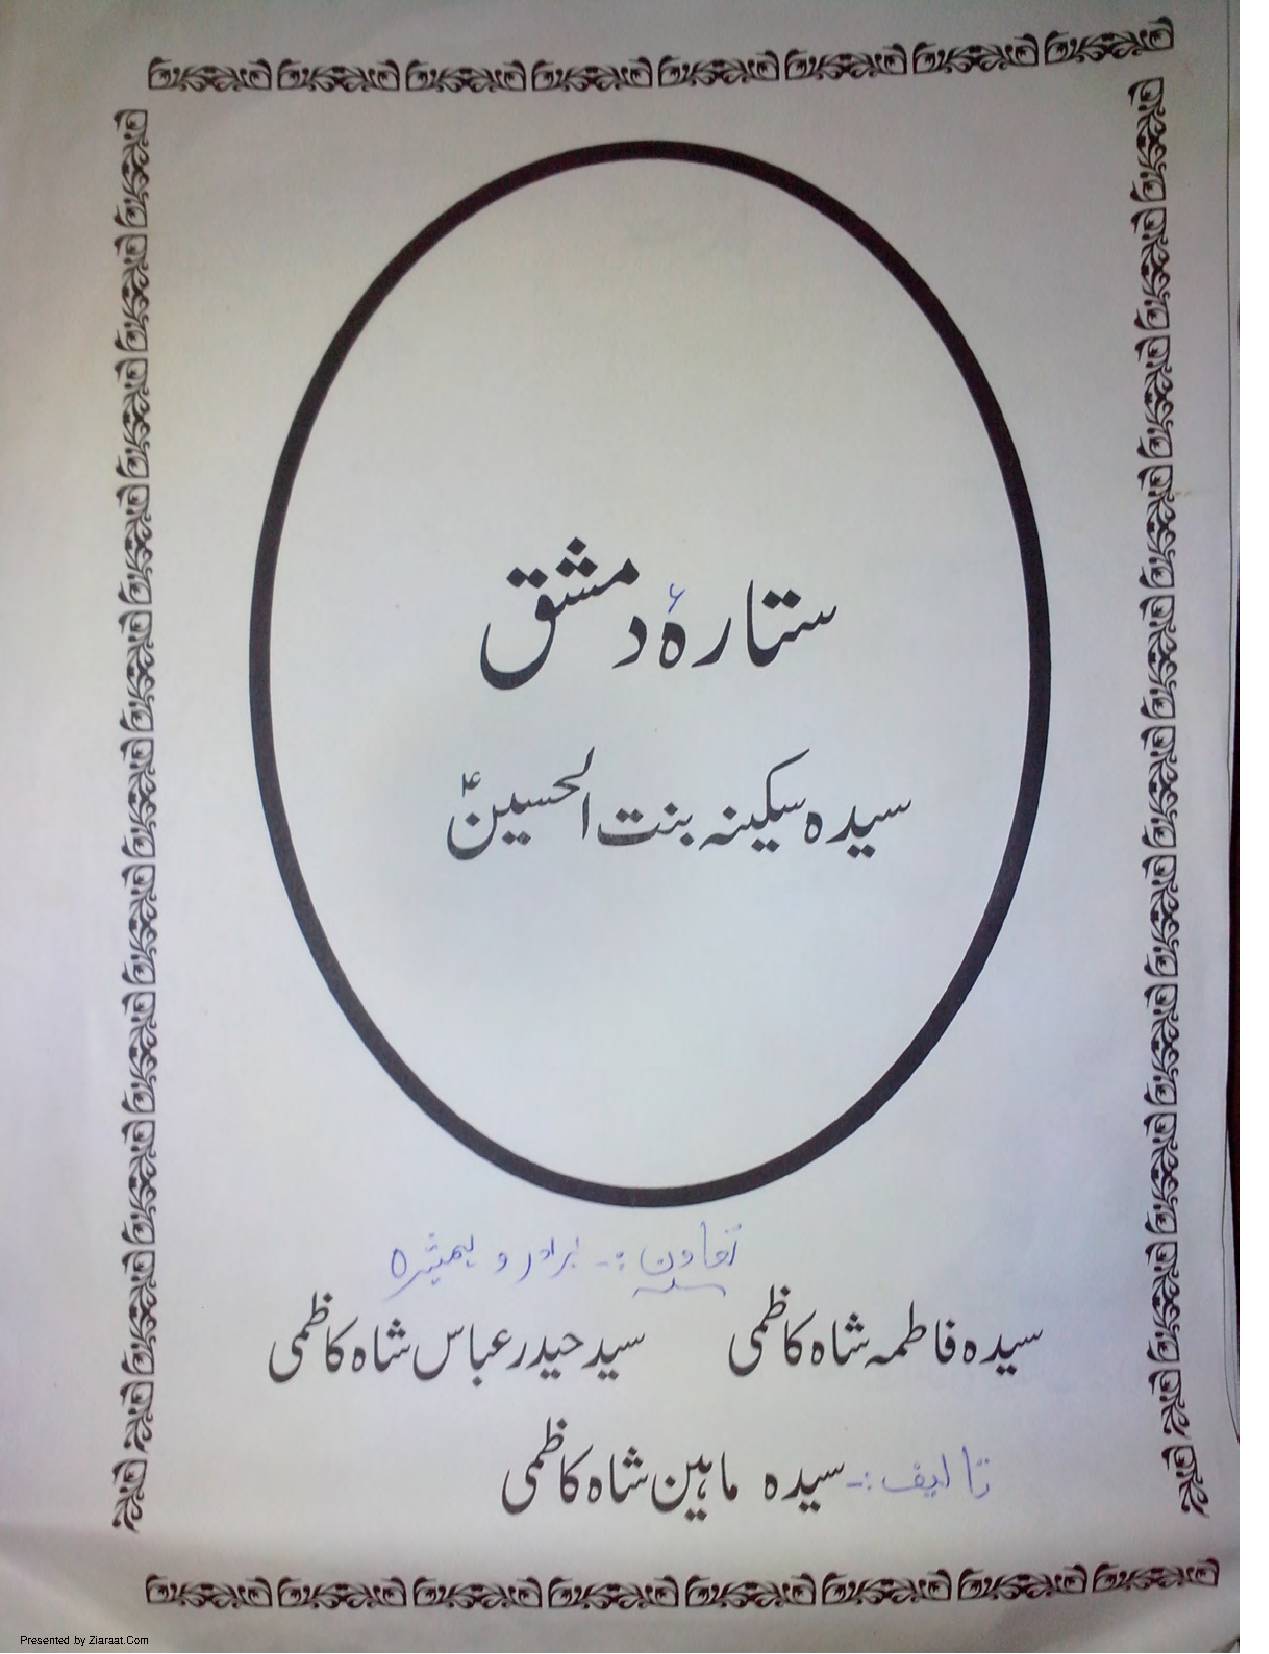 ستارۂ دمشق
سیدہ سکینہ بنت الحسینؑ
تعاون :- برادر و ہمشیرہ
سیدہ فاطمہ شاہ کاظمی سید حیدر عباس شاہ کاظمی
تالیف :- سیدہ ماہین شاہ کاظمی
Presented by Ziaraat.Com